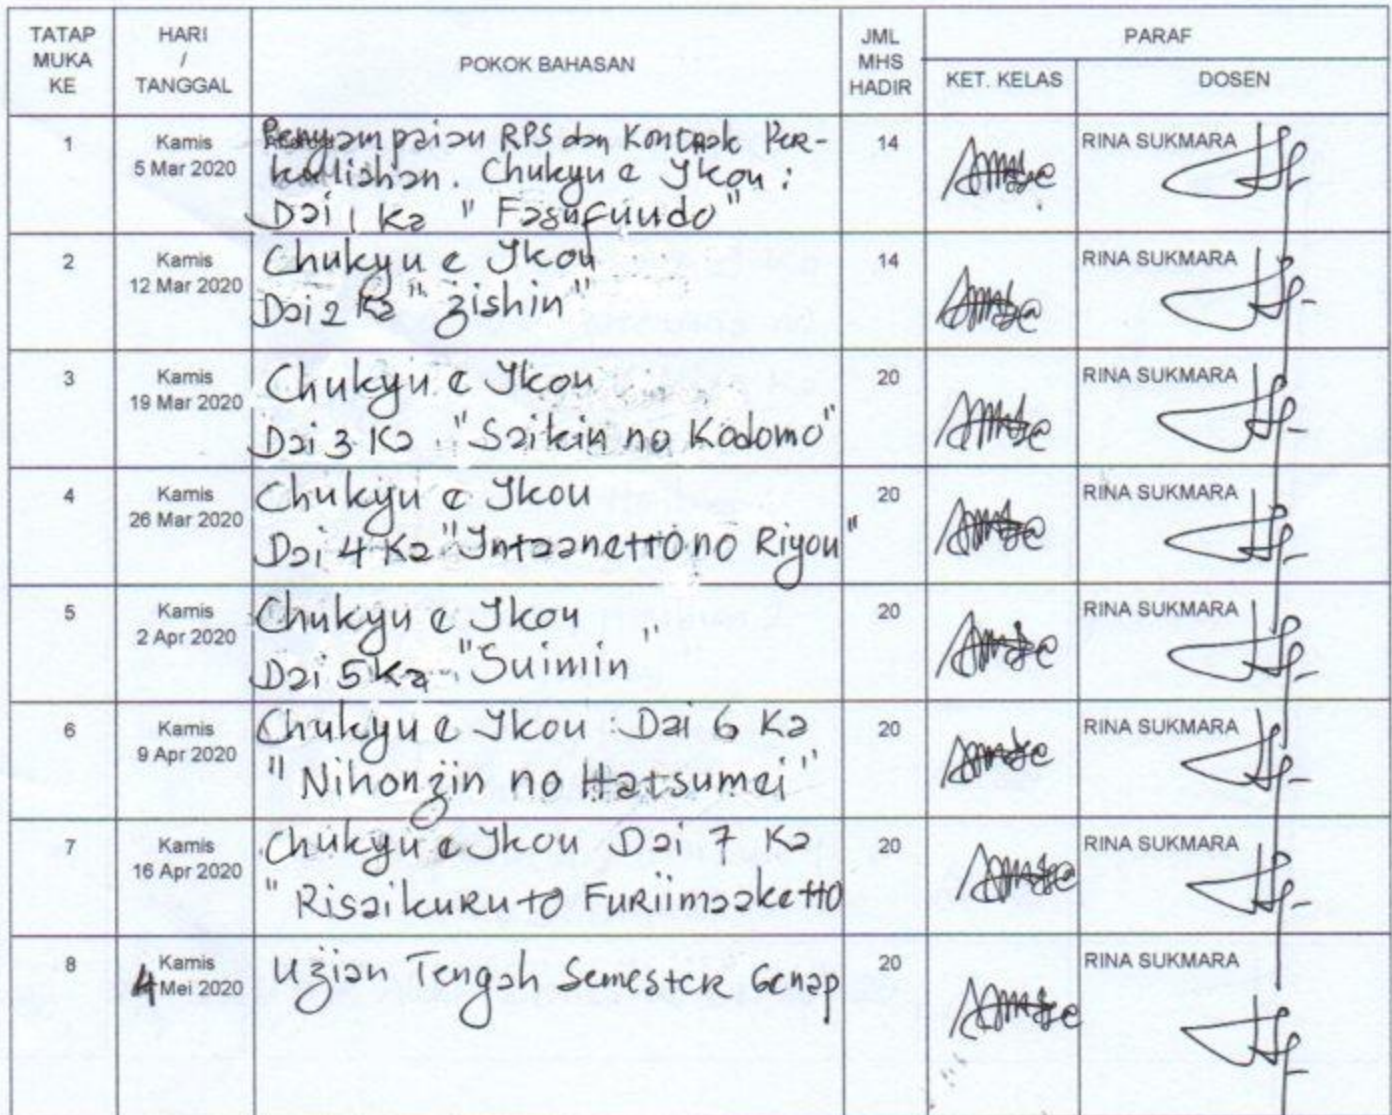 TATAP MUKA KE
HARI / TANGGAL
POKOK BAHASAN
JML MHS HADIR
PARAF
KET. KELAS
DOSEN
1
Kamis
5 Mar 2020
Penyampaian RPS dan Kontrak Per-
kuliahan. Chukyu e Ikou :
Dai 1 Ka " Fasufuudo"
14
RINA SUKMARA
2
Kamis
12 Mar 2020
Chukyu e Ikou
Dai 2 Ka " Zishin "
14
RINA SUKMARA
3
Kamis
19 Mar 2020
Chukyu e Ikou
Dai 3 Ka "Saikin no Kodomo"
20
RINA SUKMARA
4
Kamis
26 Mar 2020
Chukyu e Ikou
Dai 4 Ka "Intaanetto no Riyou"
20
RINA SUKMARA
5
Kamis
2 Apr 2020
Chukyu e Ikou
Dai 5 Ka "Suimin"
20
RINA SUKMARA
6
Kamis
9 Apr 2020
Chukyu e Ikou Dai 6 Ka
" Nihonzin no Hatsumei "
20
RINA SUKMARA
7
Kamis
16 Apr 2020
Chukyu e Ikou Dai 7 Ka
" Risaikuru to Furiimaaketto
20
RINA SUKMARA
8
Kamis
4 Mei 2020
Uzian Tengah Semester Genap
20
RINA SUKMARA